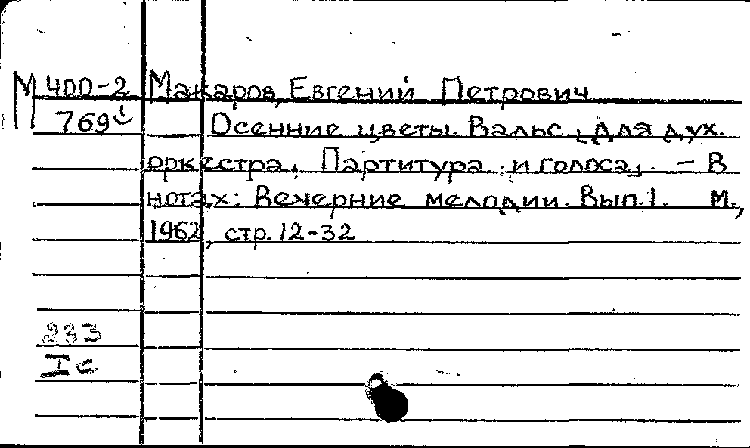 М 400-2 Макаров, Евгений Петрович
769 Осенние цветы. Вальс. Для дух.
оркестра. Партитура и голоса. - В
нотах: Вечерние мелодии. Вып.1. М.,
1962, стр.12-32
233
Iс